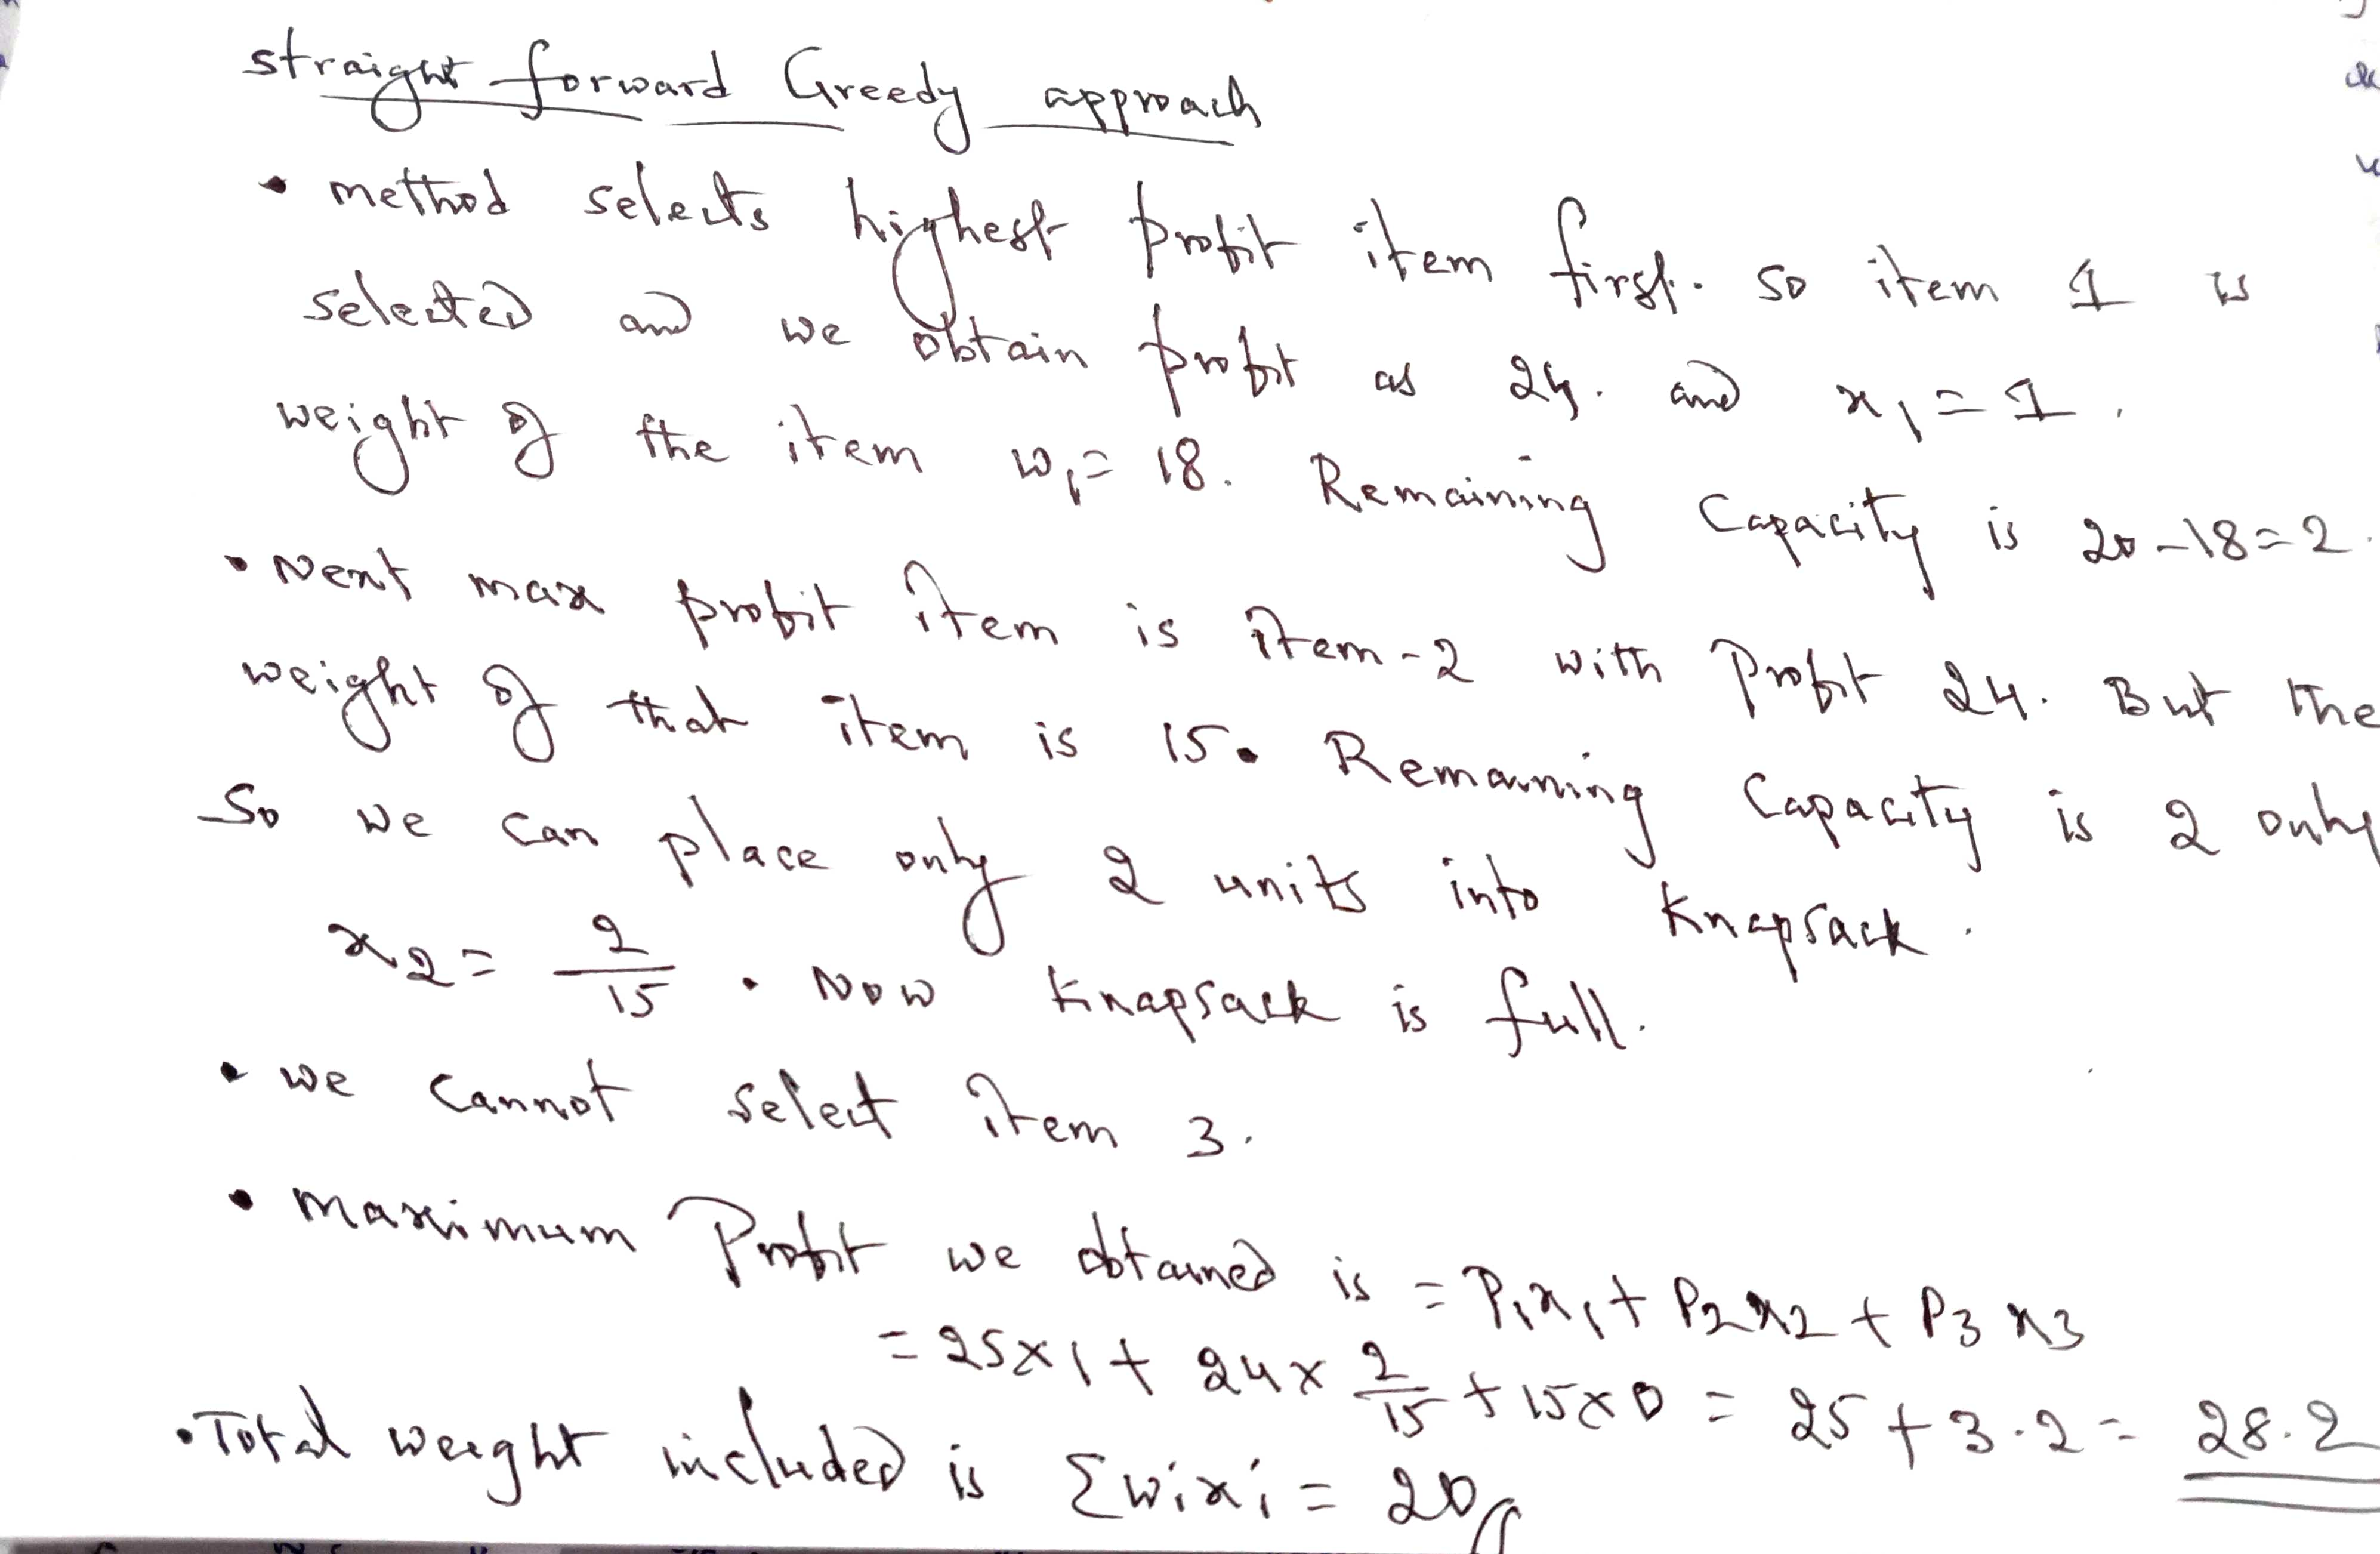 straight forward Greedy approach
• method selects highest profit item first. so item 1 is
selected and we obtain profit as 24. and x1 = 1.
weight of the item w1 = 18. Remaining Capacity is 20-18=2.
• Next max profit item is item-2 with Profit 24. But the
weight of that item is 15. Remaining Capacity is 2 only
So we can place only 2 units into Knapsack.
x2 = 2/15 . Now Knapsack is full.
• we cannot select item 3.
• maximum Profit we obtained is = P1x1 + P2x2 + P3x3
= 25x1 + 24x 2/15 + 15x0 = 25 + 3.2 = 28.2
• Total weight included is Σwixi = 20